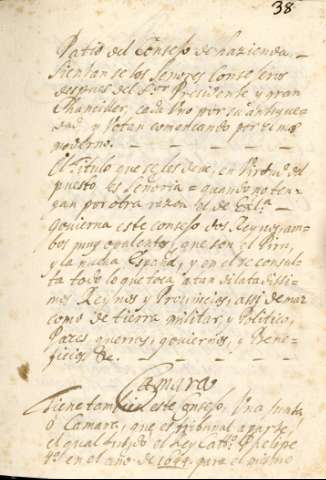 38
Patio del Consejo de hazienda.
Sientanse los Señores Consejeros
despues del Sor Presidente y gran
Chanciller, cada Uno por su antigue-
dad, y Votan comencando por el mas
moderno.
El Titulo que se les deve, en Virtud del
puesto, es Señoria = quando no ten-
gan por otra razon los de Exla =
Govierna este consejo dos Reynos, am-
bos muy opulentos, que son el Piru,
y la nueba España, y en el se consul-
ta todo lo que toca a tan dilatadissi-
mos Reynos y Provincias, assi de mar
como de tierra militar, y Politico,
Pazes, guerras, goviernos, y Bene-
ficios &c.
Camara
Tiene tambien este Consejo, Una Junta
o Camara, que es tribunal aparte,
el qual el Rey Catho Phelipe
4o en el año de 1644, para el mismo